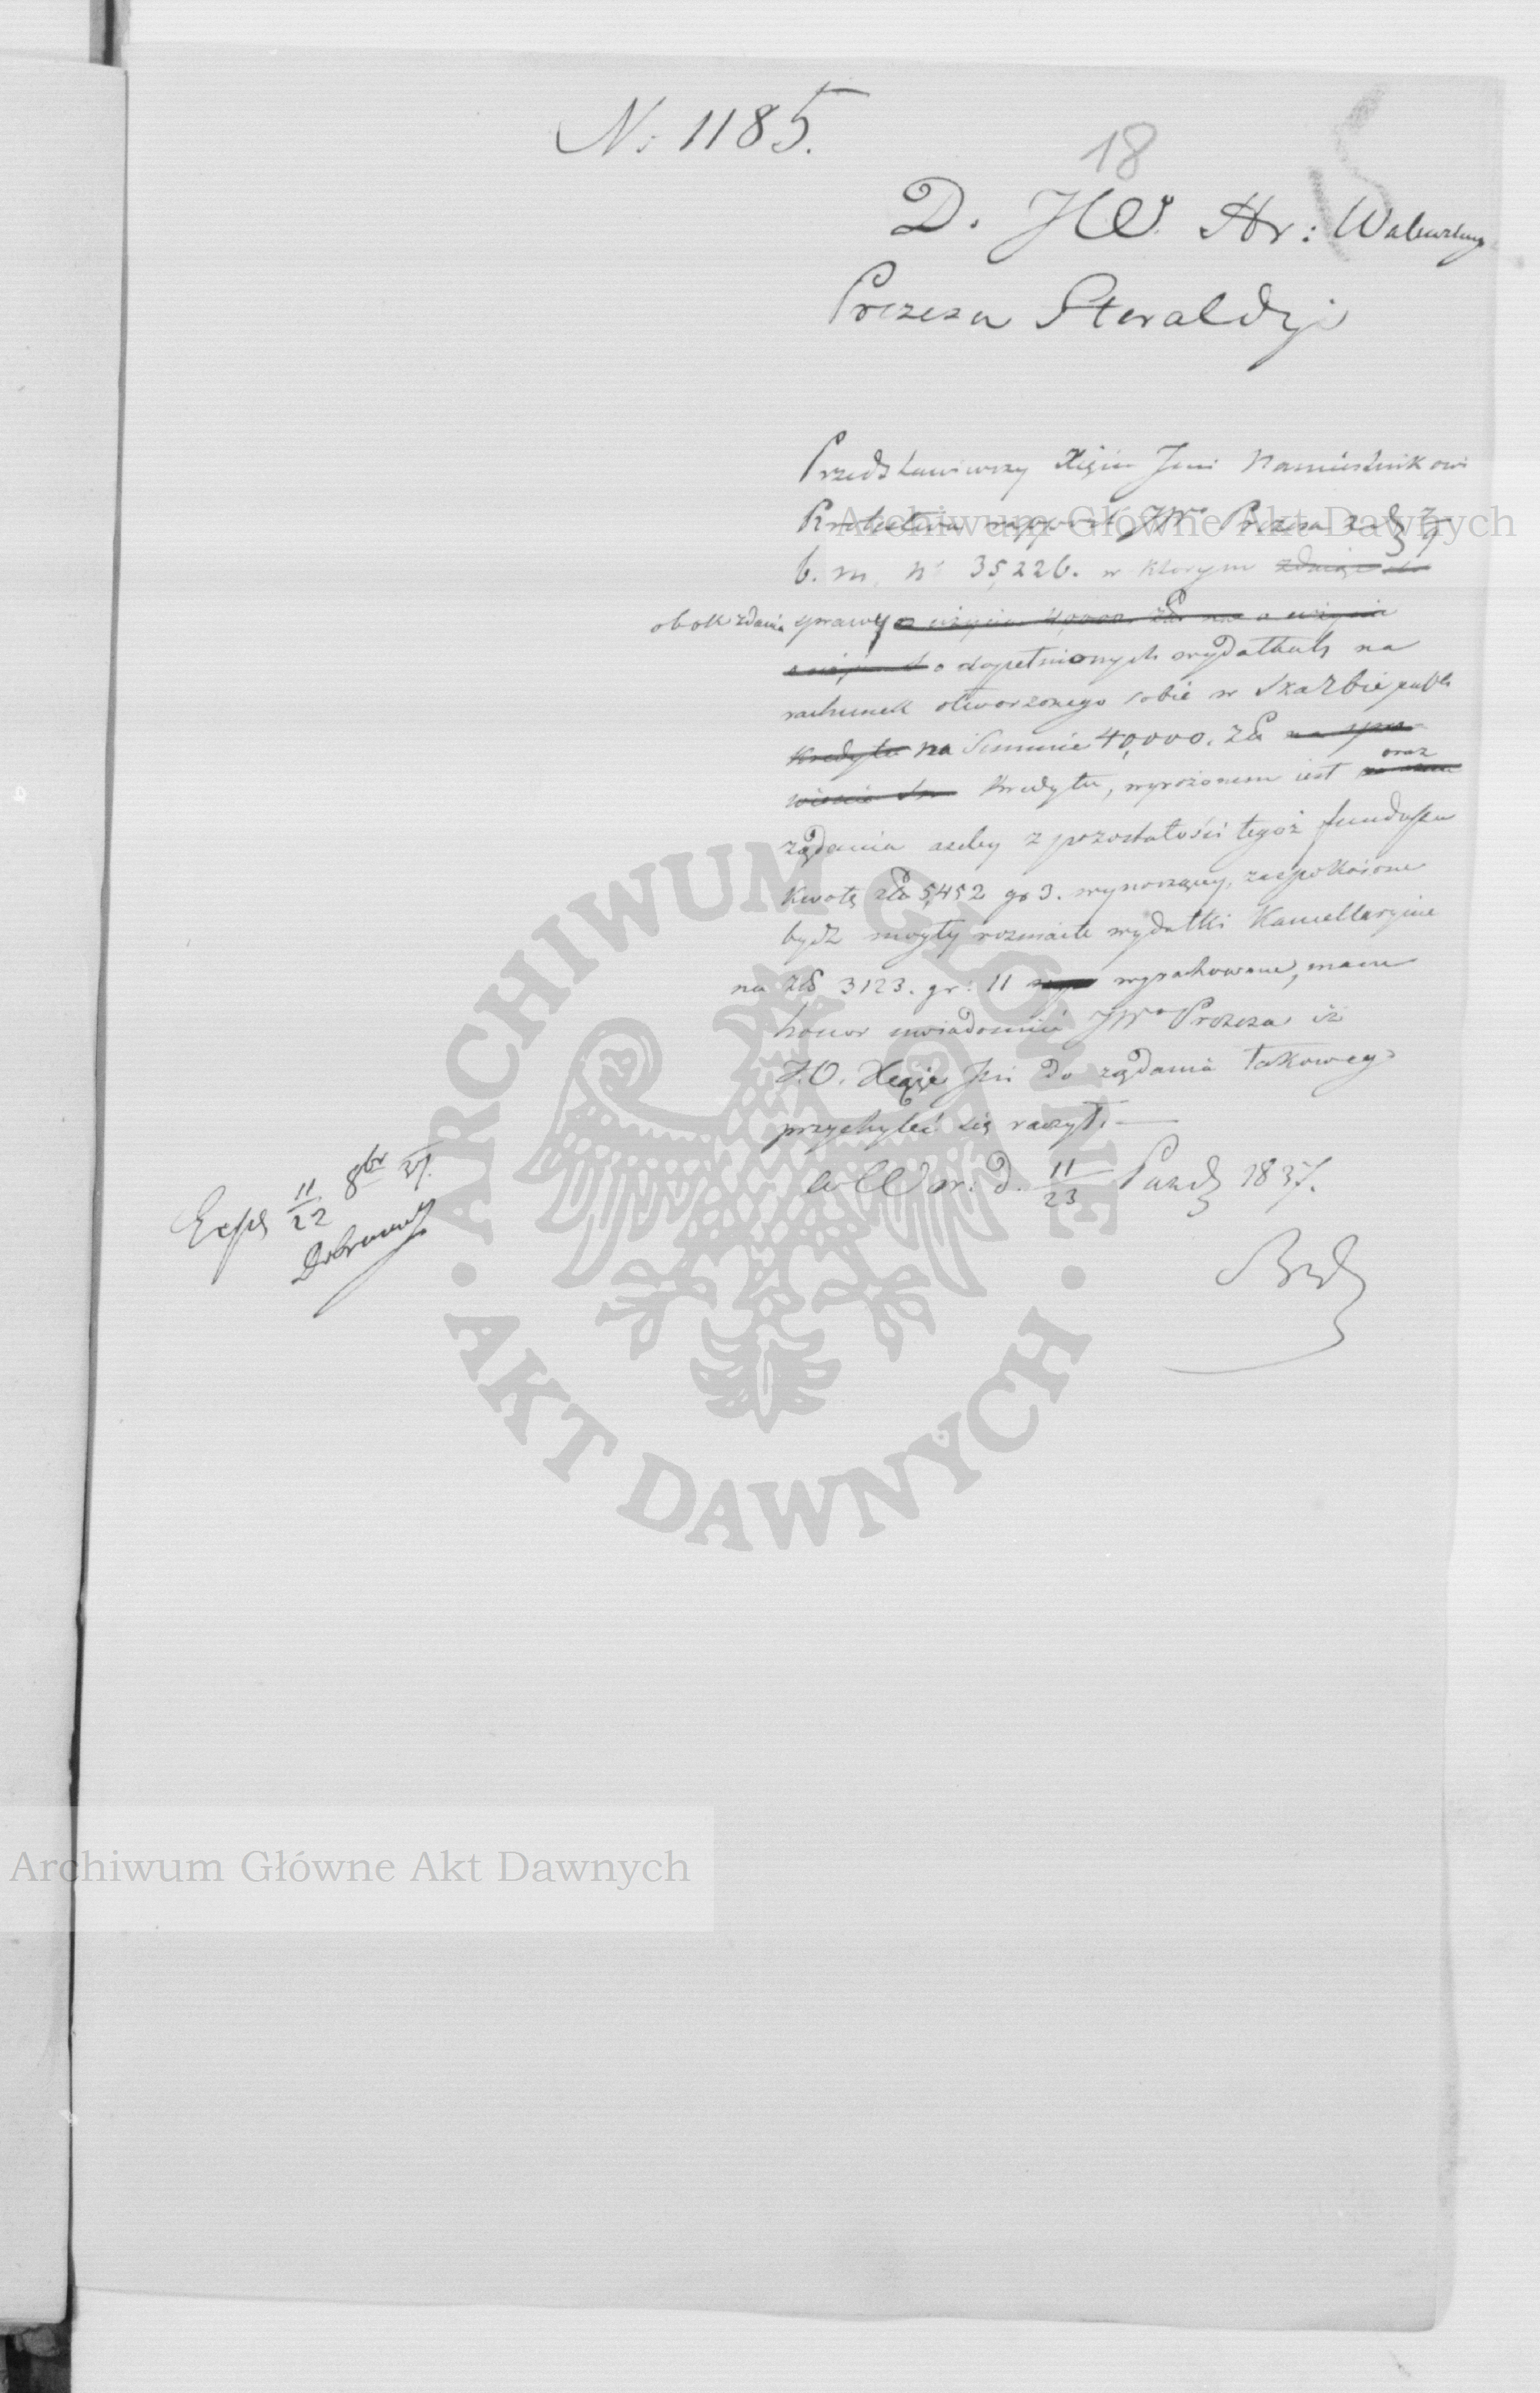 N: 1185.
18
D. JW. Hr: Walewskiego
Prezesa Heraldyi
Przedstawiwszy Xięciu Jmci Namiestnikowi
Królestwa rapport JWo Prezesa z d. 7/9
b. m. No 35,226. w którym zdając
obok zdania sprawy o użyciu 40,000 Złł na o użyciu
o dopełnionych wydatkach na
rachunek otworzonego sobie w Skarbie publ:
kredytu na Summie 40,000. Złł
kredytu, wyrażonem iest oraz
żądania ażeby z pozostałości tegoż funduszu
kwotę złł 5,452 gr 3. wynoszącey, zaspokoione
bydź mogły rozmaite wydatki Kancellaryine
na złł 3123. gr: 11 wyrachowane, mam
honor uwiadomić JWo Prezesa iż
J.O. Xiążę Jmć do żądania takowego
przychylić się raczył. —
w War: d. 11/23 Paźdz 1837.
Exp 11/22 8br 37.
Archiwum Główne Akt Dawnych
ARCHIWUM GŁÓWNE
AKT DAWNYCH
Archiwum Główne Akt Dawnych